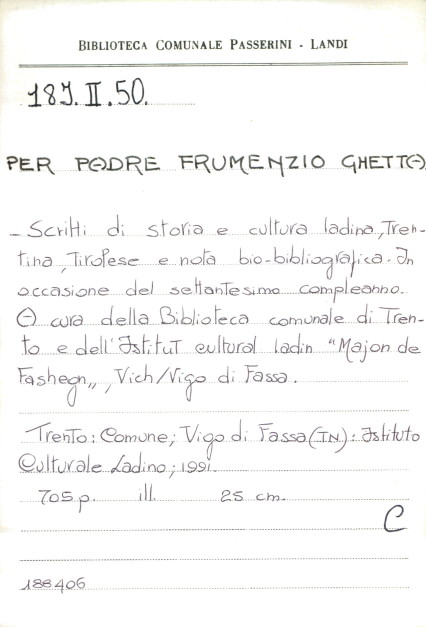 BIBLIOTECA COMUNALE PASSERINI - LANDI
187.II.50.
PER PADRE FRUMENZIO GHETTA
- Scritti di storia e cultura ladina, Tren-
tina, Tirolese e nota bio-bibliografica. In
occasione del settantesimo compleanno.
A cura della Biblioteca comunale di Tren-
to e dell'Istitut cultural ladin "Majon de
Fashegn", Vich/Vigo di Fassa.
Trento: Comune; Vigo di Fassa (TN): Istituto
Culturale Ladino; 1991.
705 p. ill. 25 cm.
C
188406